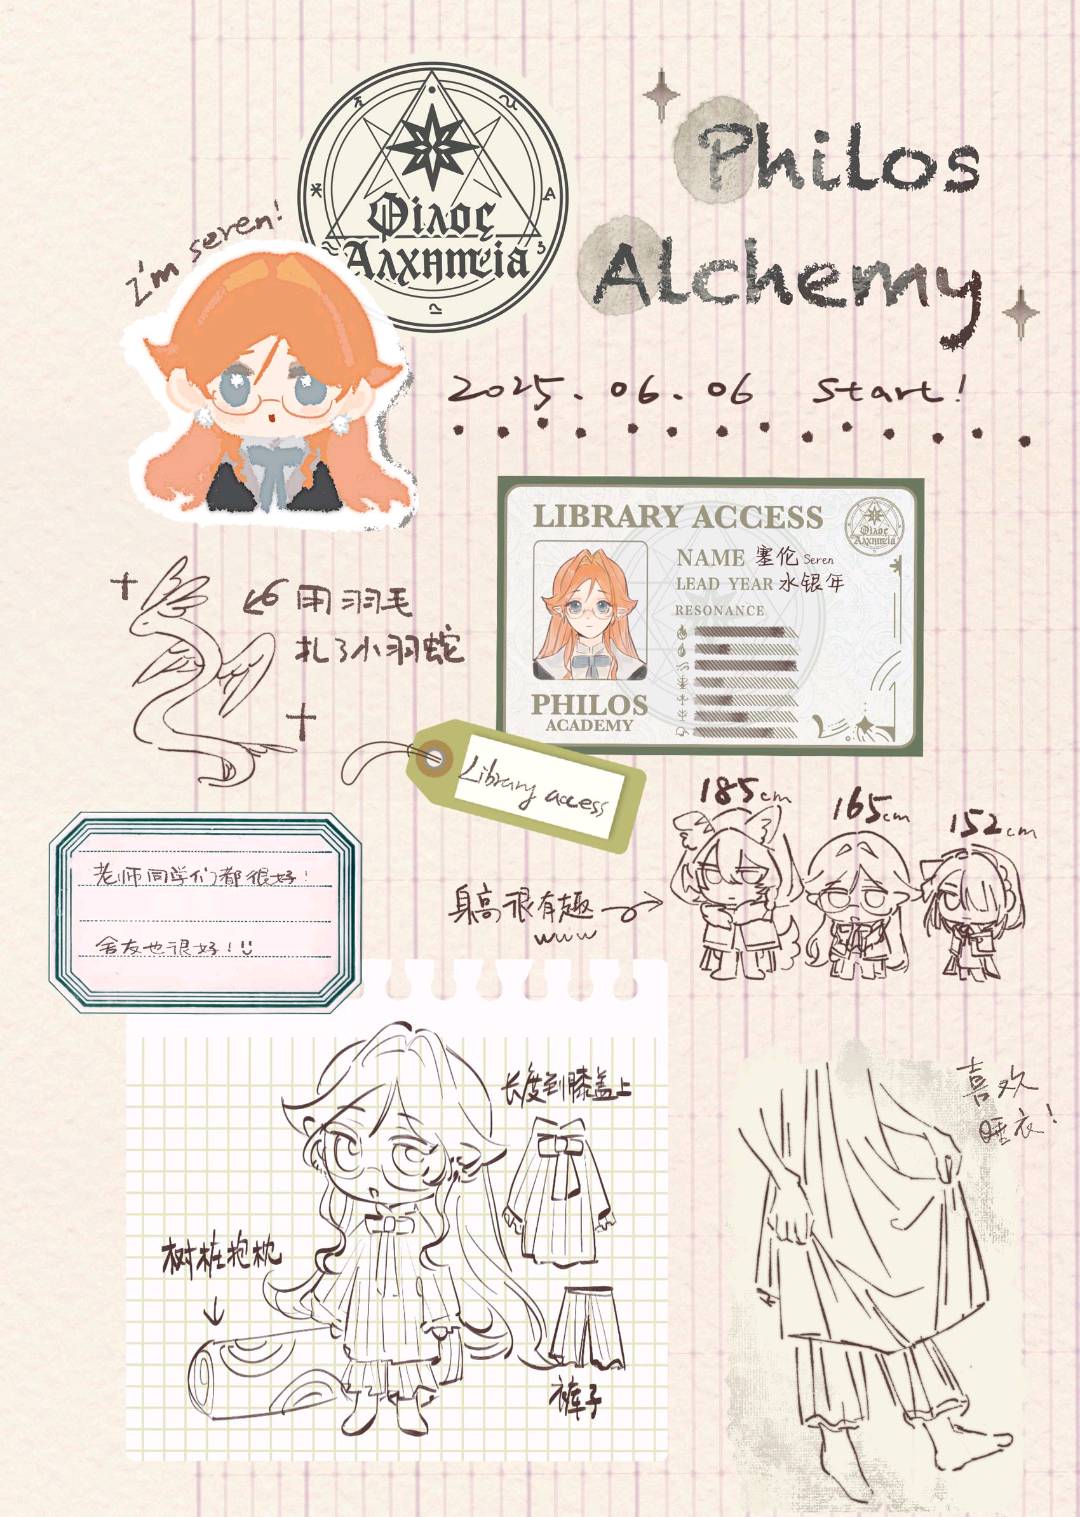 Φίλος
Αλχημεία
Philos
Alchemy
I'm seren!
2025.06.06 Start!
LIBRARY ACCESS
Φίλος
Αλχημεία
NAME 塞伦 Seren
LEAD YEAR 水银年
RESONANCE
PHILOS
ACADEMY
用羽毛
扎了小羽蛇
Library access
185cm
165cm
152cm
身高很有趣
www
老师同学们都很好!
舍友也很好!
长度到膝盖上
喜欢
睡衣!
树桩抱枕
裤子